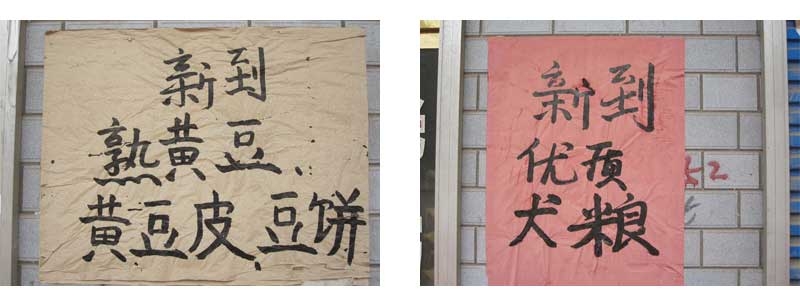 新到
熟黄豆、
黄豆皮豆饼
新到
优质
犬粮
52